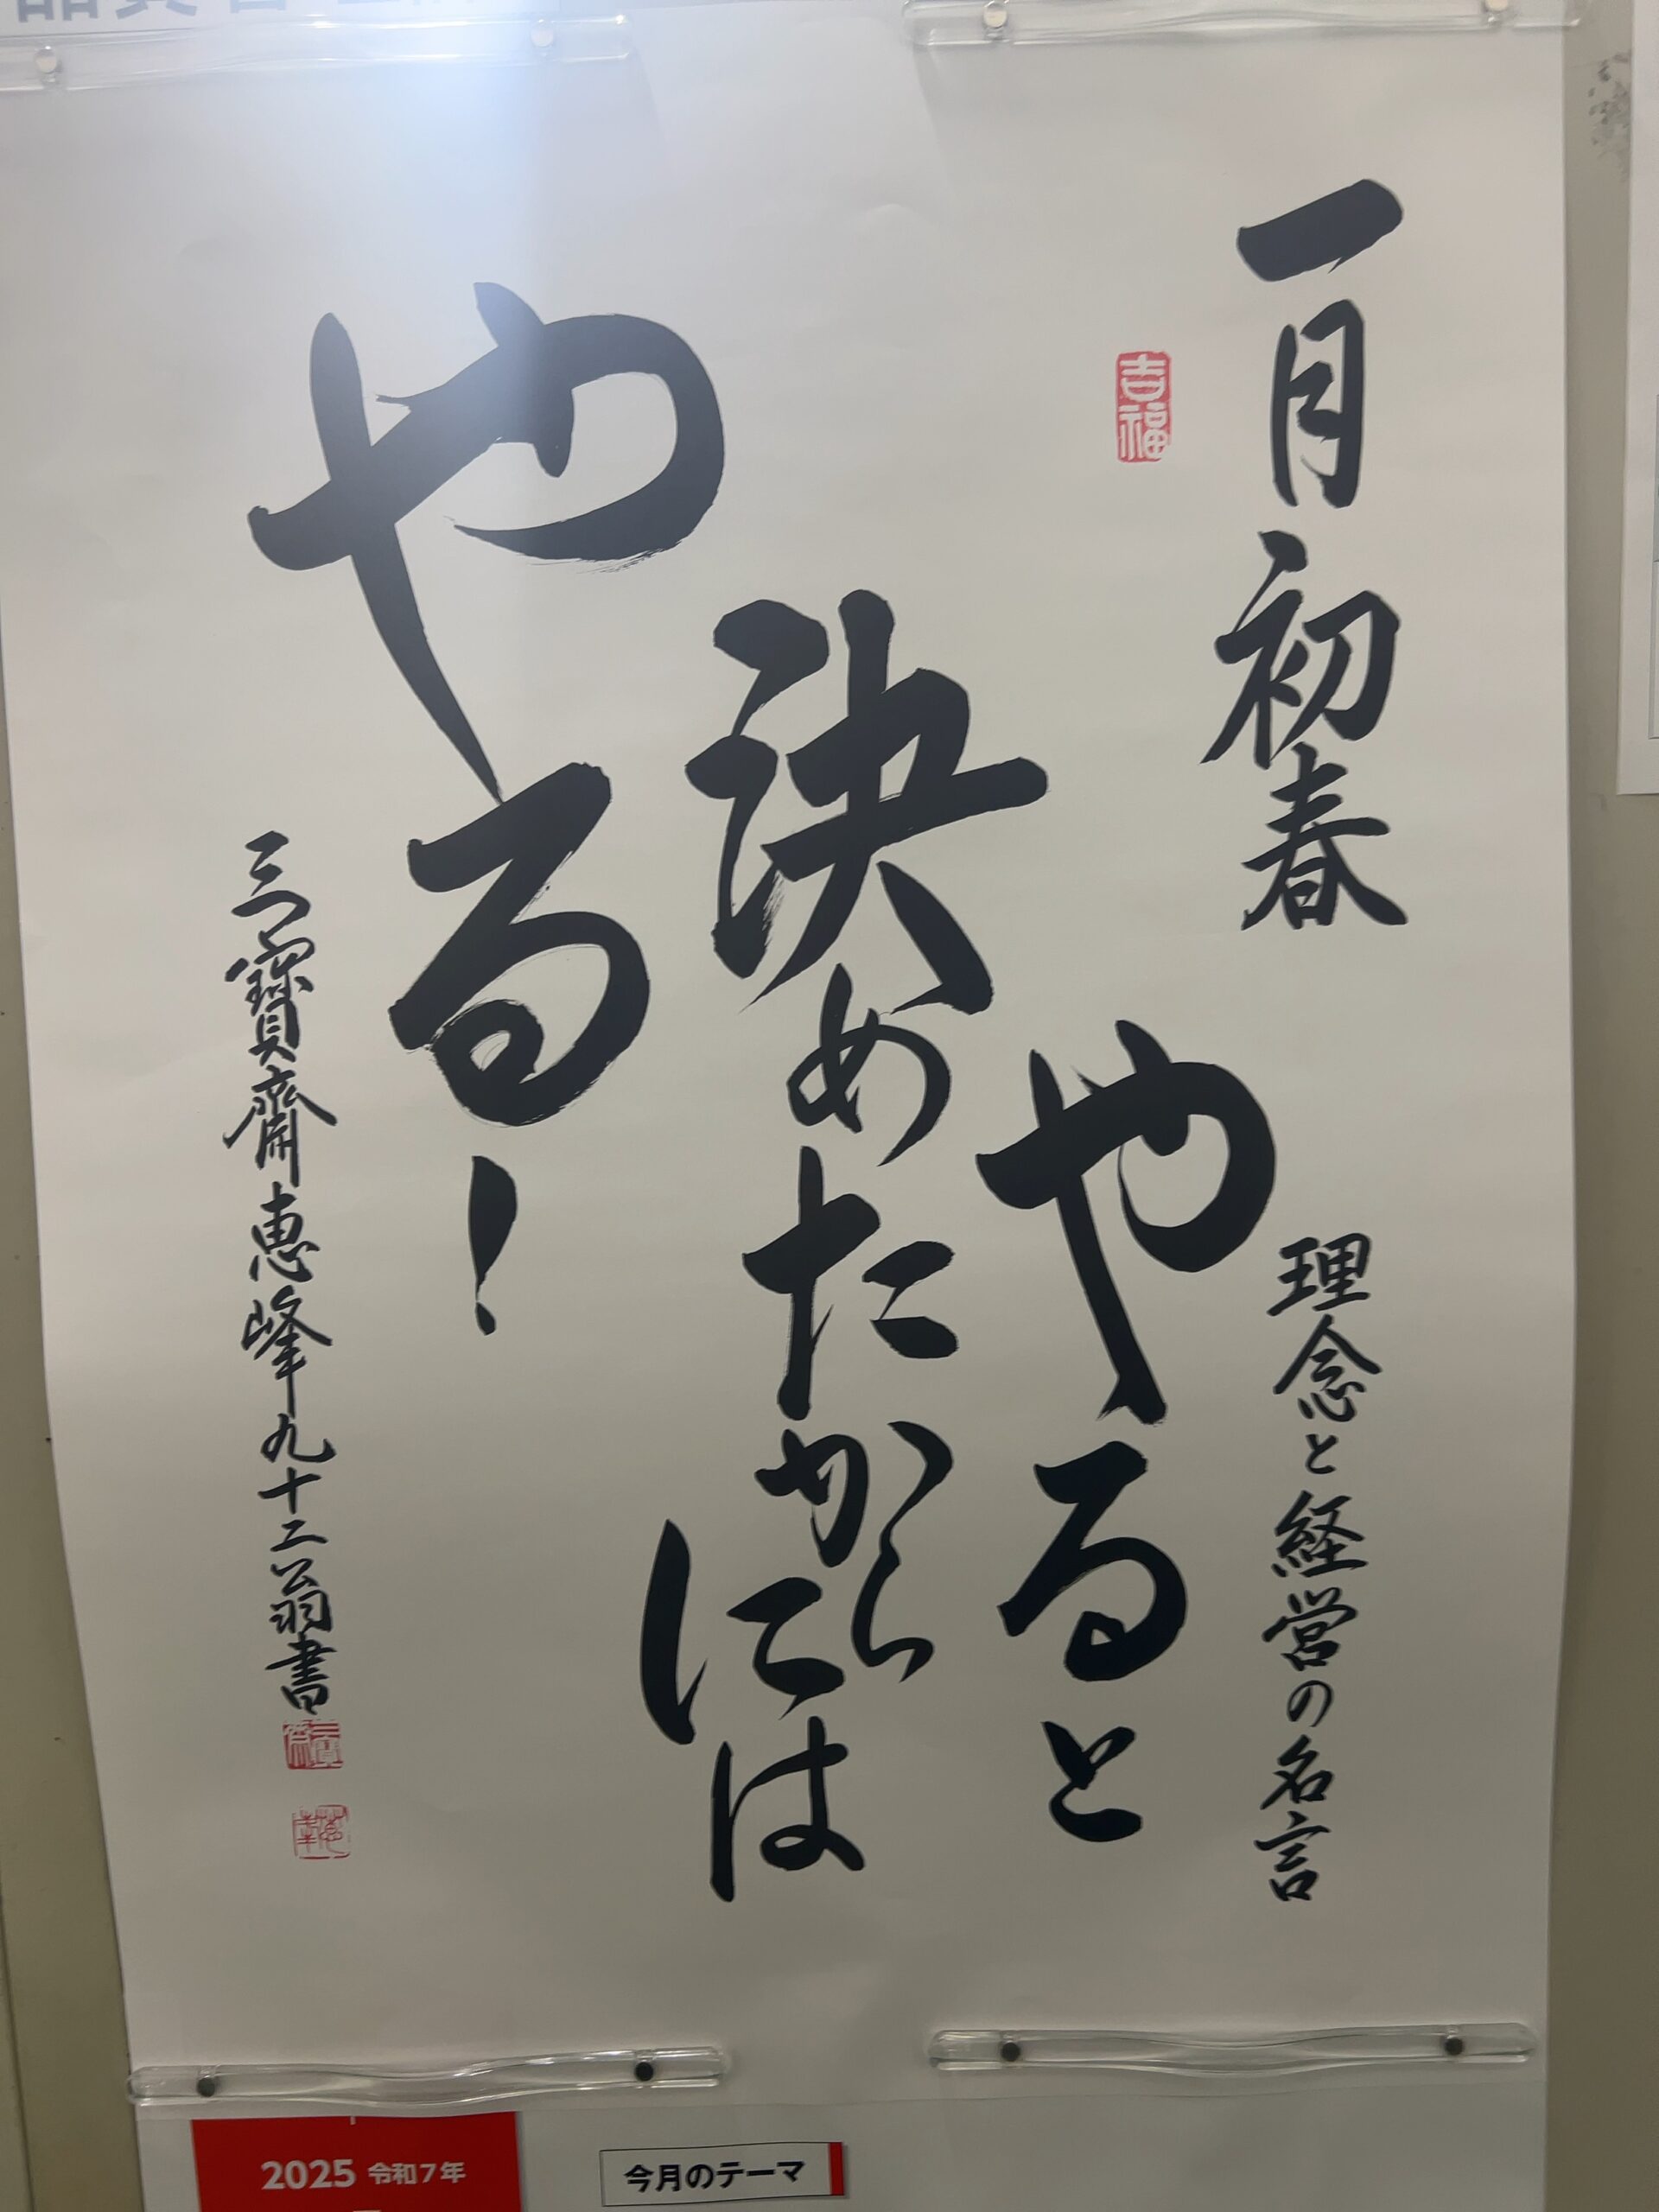 一月 初春
理念と経営の名言
吉福
やると
決めたからには
やる!
三寶齋惠峰九十二翁書
2025 令和7年
今月のテーマ